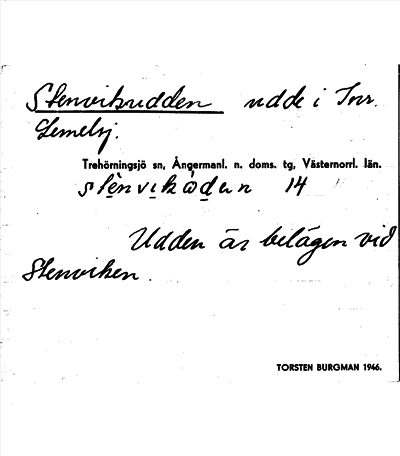 Stenviksudden udde i Inr.
Lemelsj.
Trehörningsjö sn, Ångermanl. n. doms. tg, Västernorrl. län.
stènvikådan 14
Udden är belägen vid
Stenviken.
TORSTEN BURGMAN 1946.